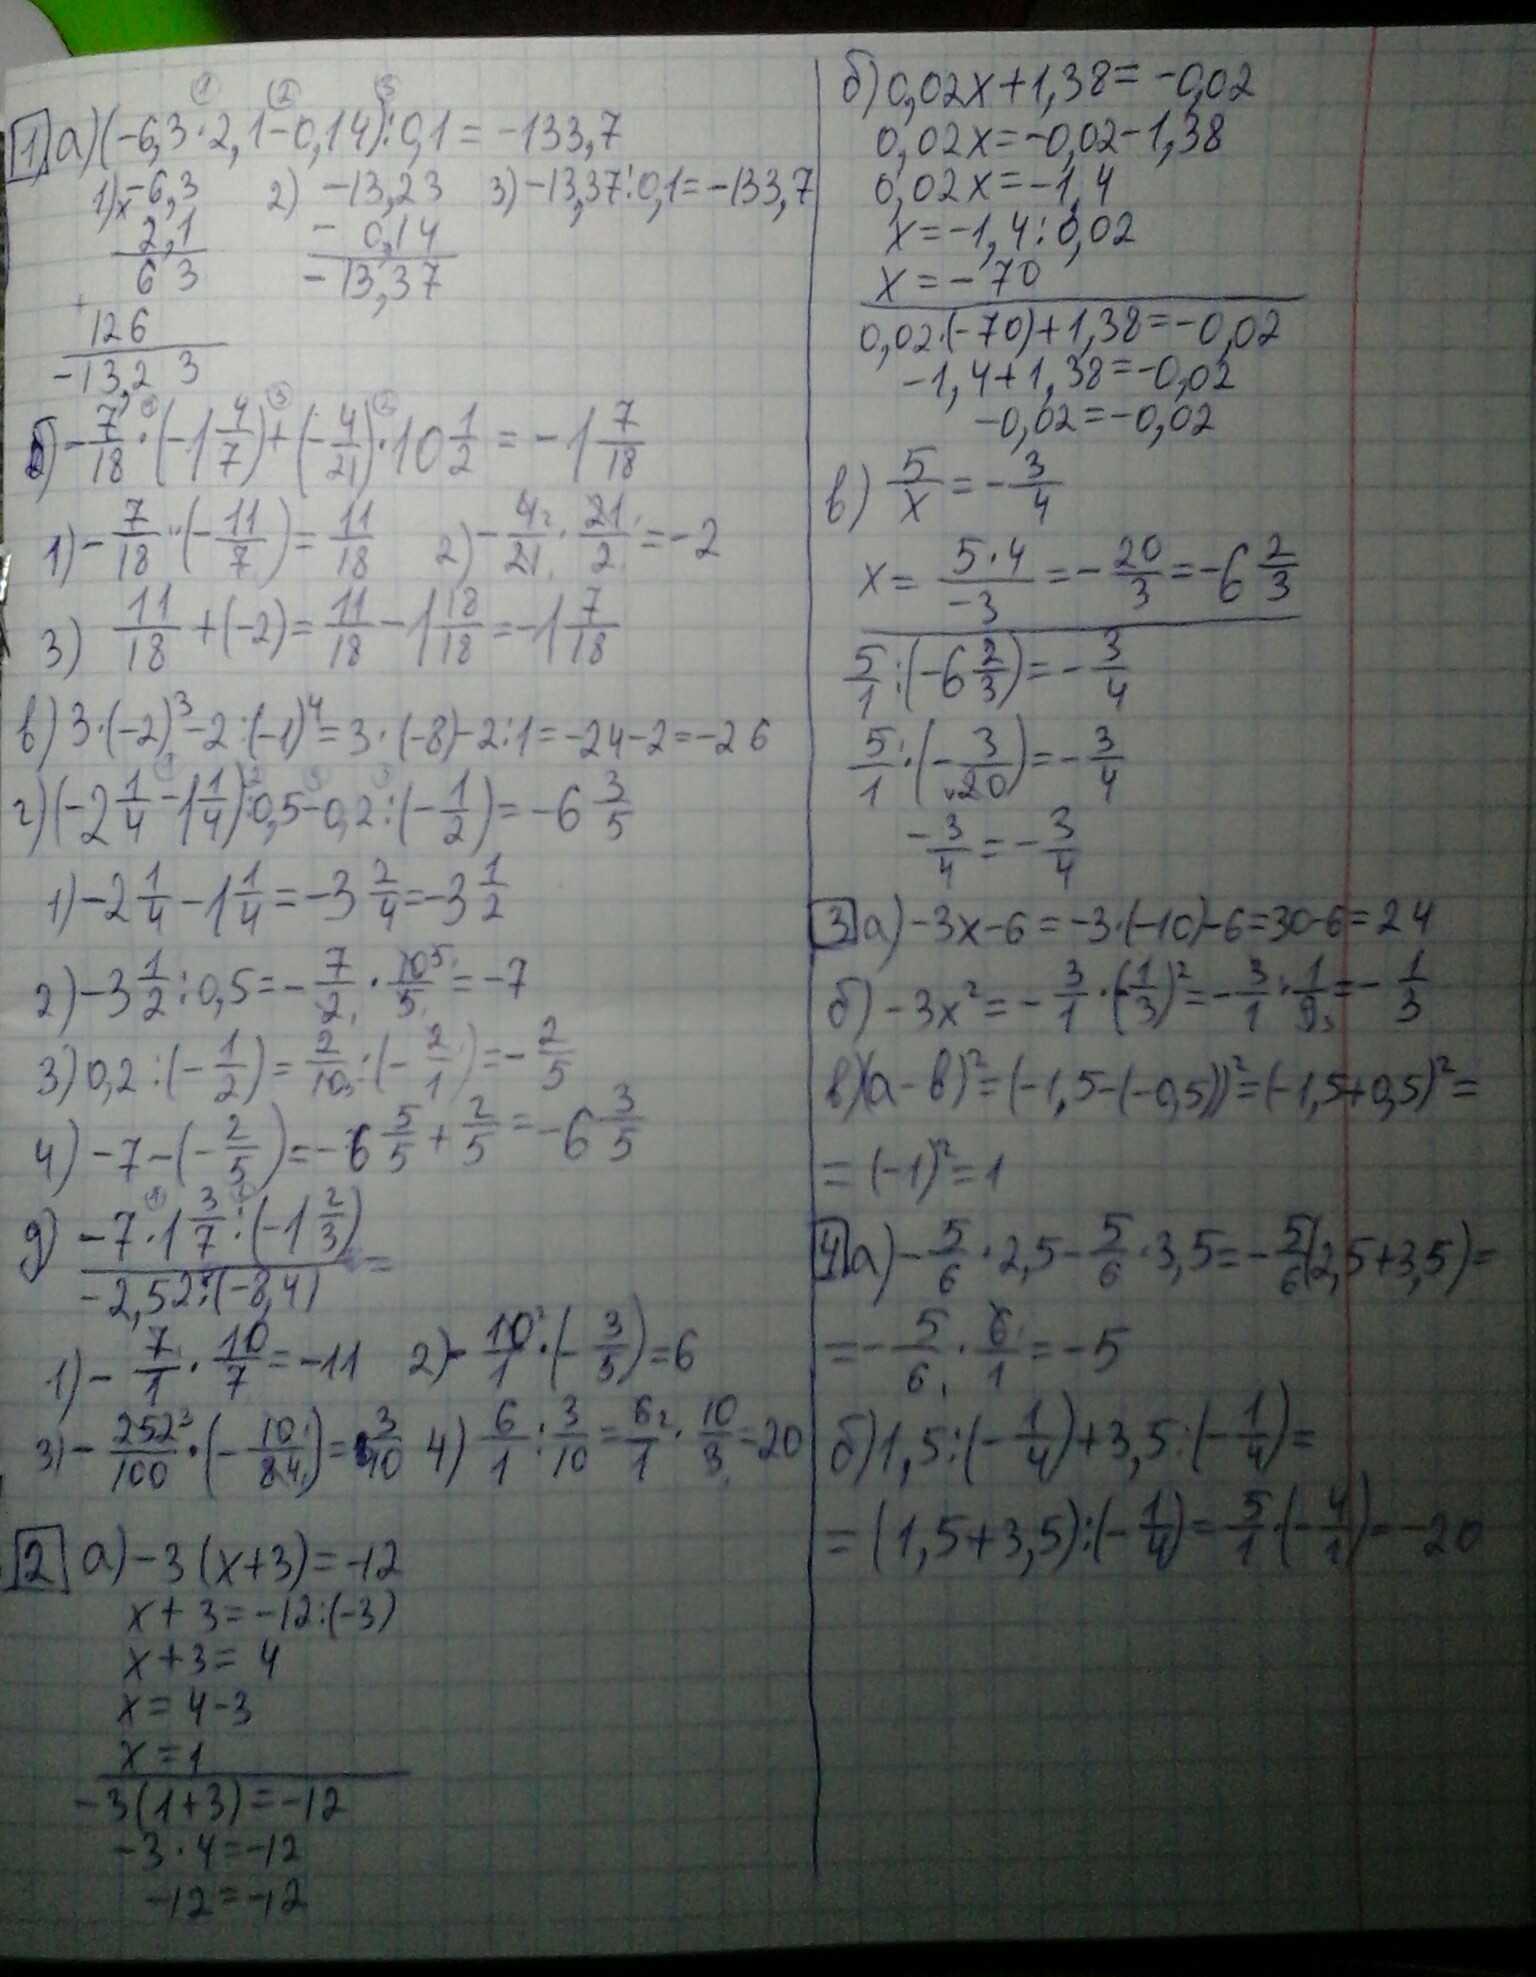 1) а) (-6,3·2,1-0,14):0,1 = -133,7
1) × -6,3   2) -13,23   3) -13,37:0,1 = -133,7
2,1   - 0,14
63   -13,37
+
126
-13,23
б) -7/18·(-1 4/7)+(-4/21)·10 1/2 = -1 7/18
1) -7/18·(-11/7) = 11/18   2) -4/21·21/2 = -2
3) 11/18+(-2) = 11/18-1 18/18 = -1 7/18
в) 3·(-2)³-2:(-1)⁴ = 3·(-8)-2:1 = -24-2 = -26
г) (-2 1/4-1 1/4):0,5-0,2:(-1/2) = -6 3/5
1) -2 1/4-1 1/4 = -3 2/4 = -3 1/2
2) -3 1/2:0,5 = -7/2·10/5 = -7
3) 0,2:(-1/2) = 2/10:(-2/1) = -2/5
4) -7-(-2/5) = -6 5/5+2/5 = -6 3/5
д) -7·1 3/7:(-1 2/3)
/ -2,52:(-8,4) =
1) -7/1·10/7 = -11   2) -10/1·(-3/5) = 6
3) -252/100·(-10/84) = 3/10   4) 6/1:3/10 = 6/1·10/3 = 20
2 а) -3(x+3) = -12
x+3 = -12:(-3)
x+3 = 4
x = 4-3
x = 1
-3(1+3) = -12
-3·4 = -12
-12 = -12
б) 0,02x+1,38 = -0,02
0,02x = -0,02-1,38
0,02x = -1,4
x = -1,4:0,02
x = -70
0,02·(-70)+1,38 = -0,02
-1,4+1,38 = -0,02
-0,02 = -0,02
в) 5/x = -3/4
x = 5·4/-3 = -20/3 = -6 2/3
5/1:(-6 2/3) = -3/4
5/1·(-3/20) = -3/4
-3/4 = -3/4
3 а) -3x-6 = -3·(-10)-6 = 30-6 = 24
б) -3x² = -3/1·(-1/3)² = -3/1·1/9 = -1/3
в) (a-b)² = (-1,5-(-0,5))² = (-1,5+0,5)² =
= (-1)² = 1
4 а) -5/6·2,5-5/6·3,5 = -5/6(2,5+3,5) =
= -5/6·6/1 = -5
б) 1,5:(-1/4)+3,5:(-1/4) =
= (1,5+3,5):(-1/4) = 5/1·(-4/1) = -20